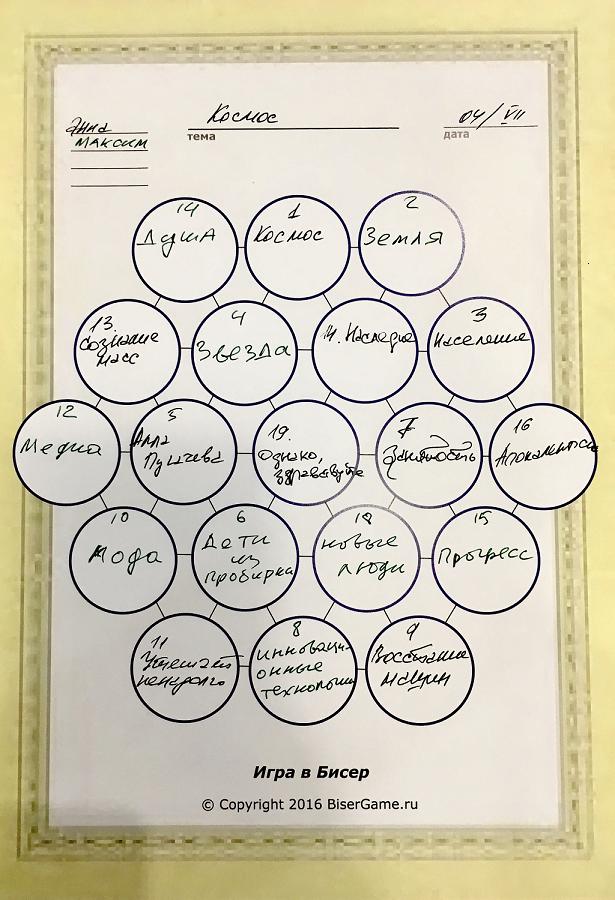 Анна
Космос
04/VII
Максим
тема
дата
14
Душа
1
Космос
2
Земля
13.
Сознание
масс
4
Звезда
Наследие
3
Население
12
Медиа
5
Алла
Пугачева
19.
Однако,
здравствуйте
7
Занятость
16
Апокалипсис
10
Мода
6
Дети
из
пробирки
18
новые
люди
15
Прогресс
11
ненадолго
8
инноваци-
онные
технологии
9
Восстание
машин
Игра в Бисер
© Copyright 2016 BiserGame.ru